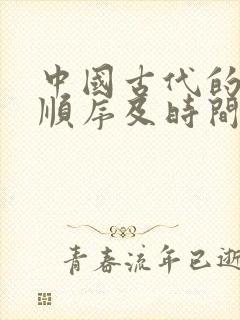 中國古代的
順序及時間
青春流年已逝